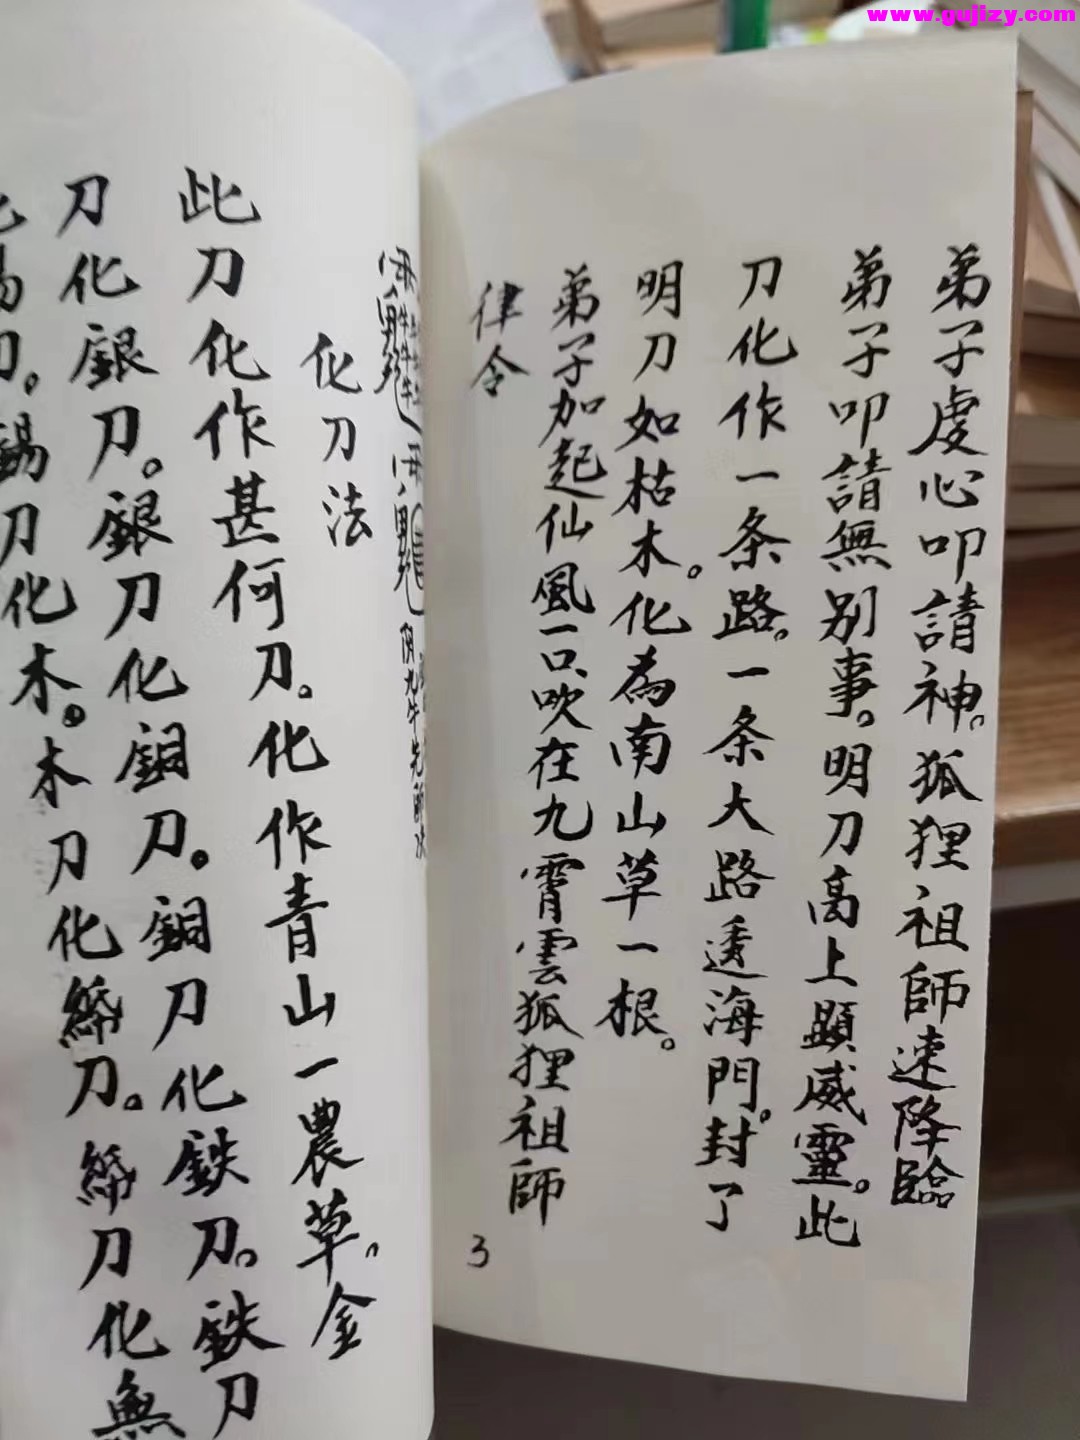 www.gujizy.com
弟子虔心叩請神。狐狸祖師速降臨
弟子叩請無别事。明刀高上顕威靈。此
刀化作一条路。一条大路透海門。封了
明刀如枯木。化為南山草一根。
弟子加起仙風一口吹在九霄雲狐狸祖師
律令
3
化刀法
此刀化作甚何刀。化作青山一農草。金
刀化銀刀。銀刀化銅刀。銅刀化鉄刀。鉄刀
刀。錫刀化木。木刀化 刀。 刀化無